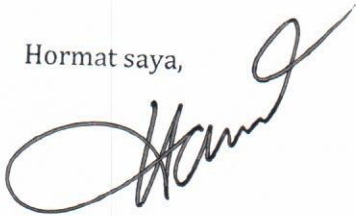 Hormat saya,